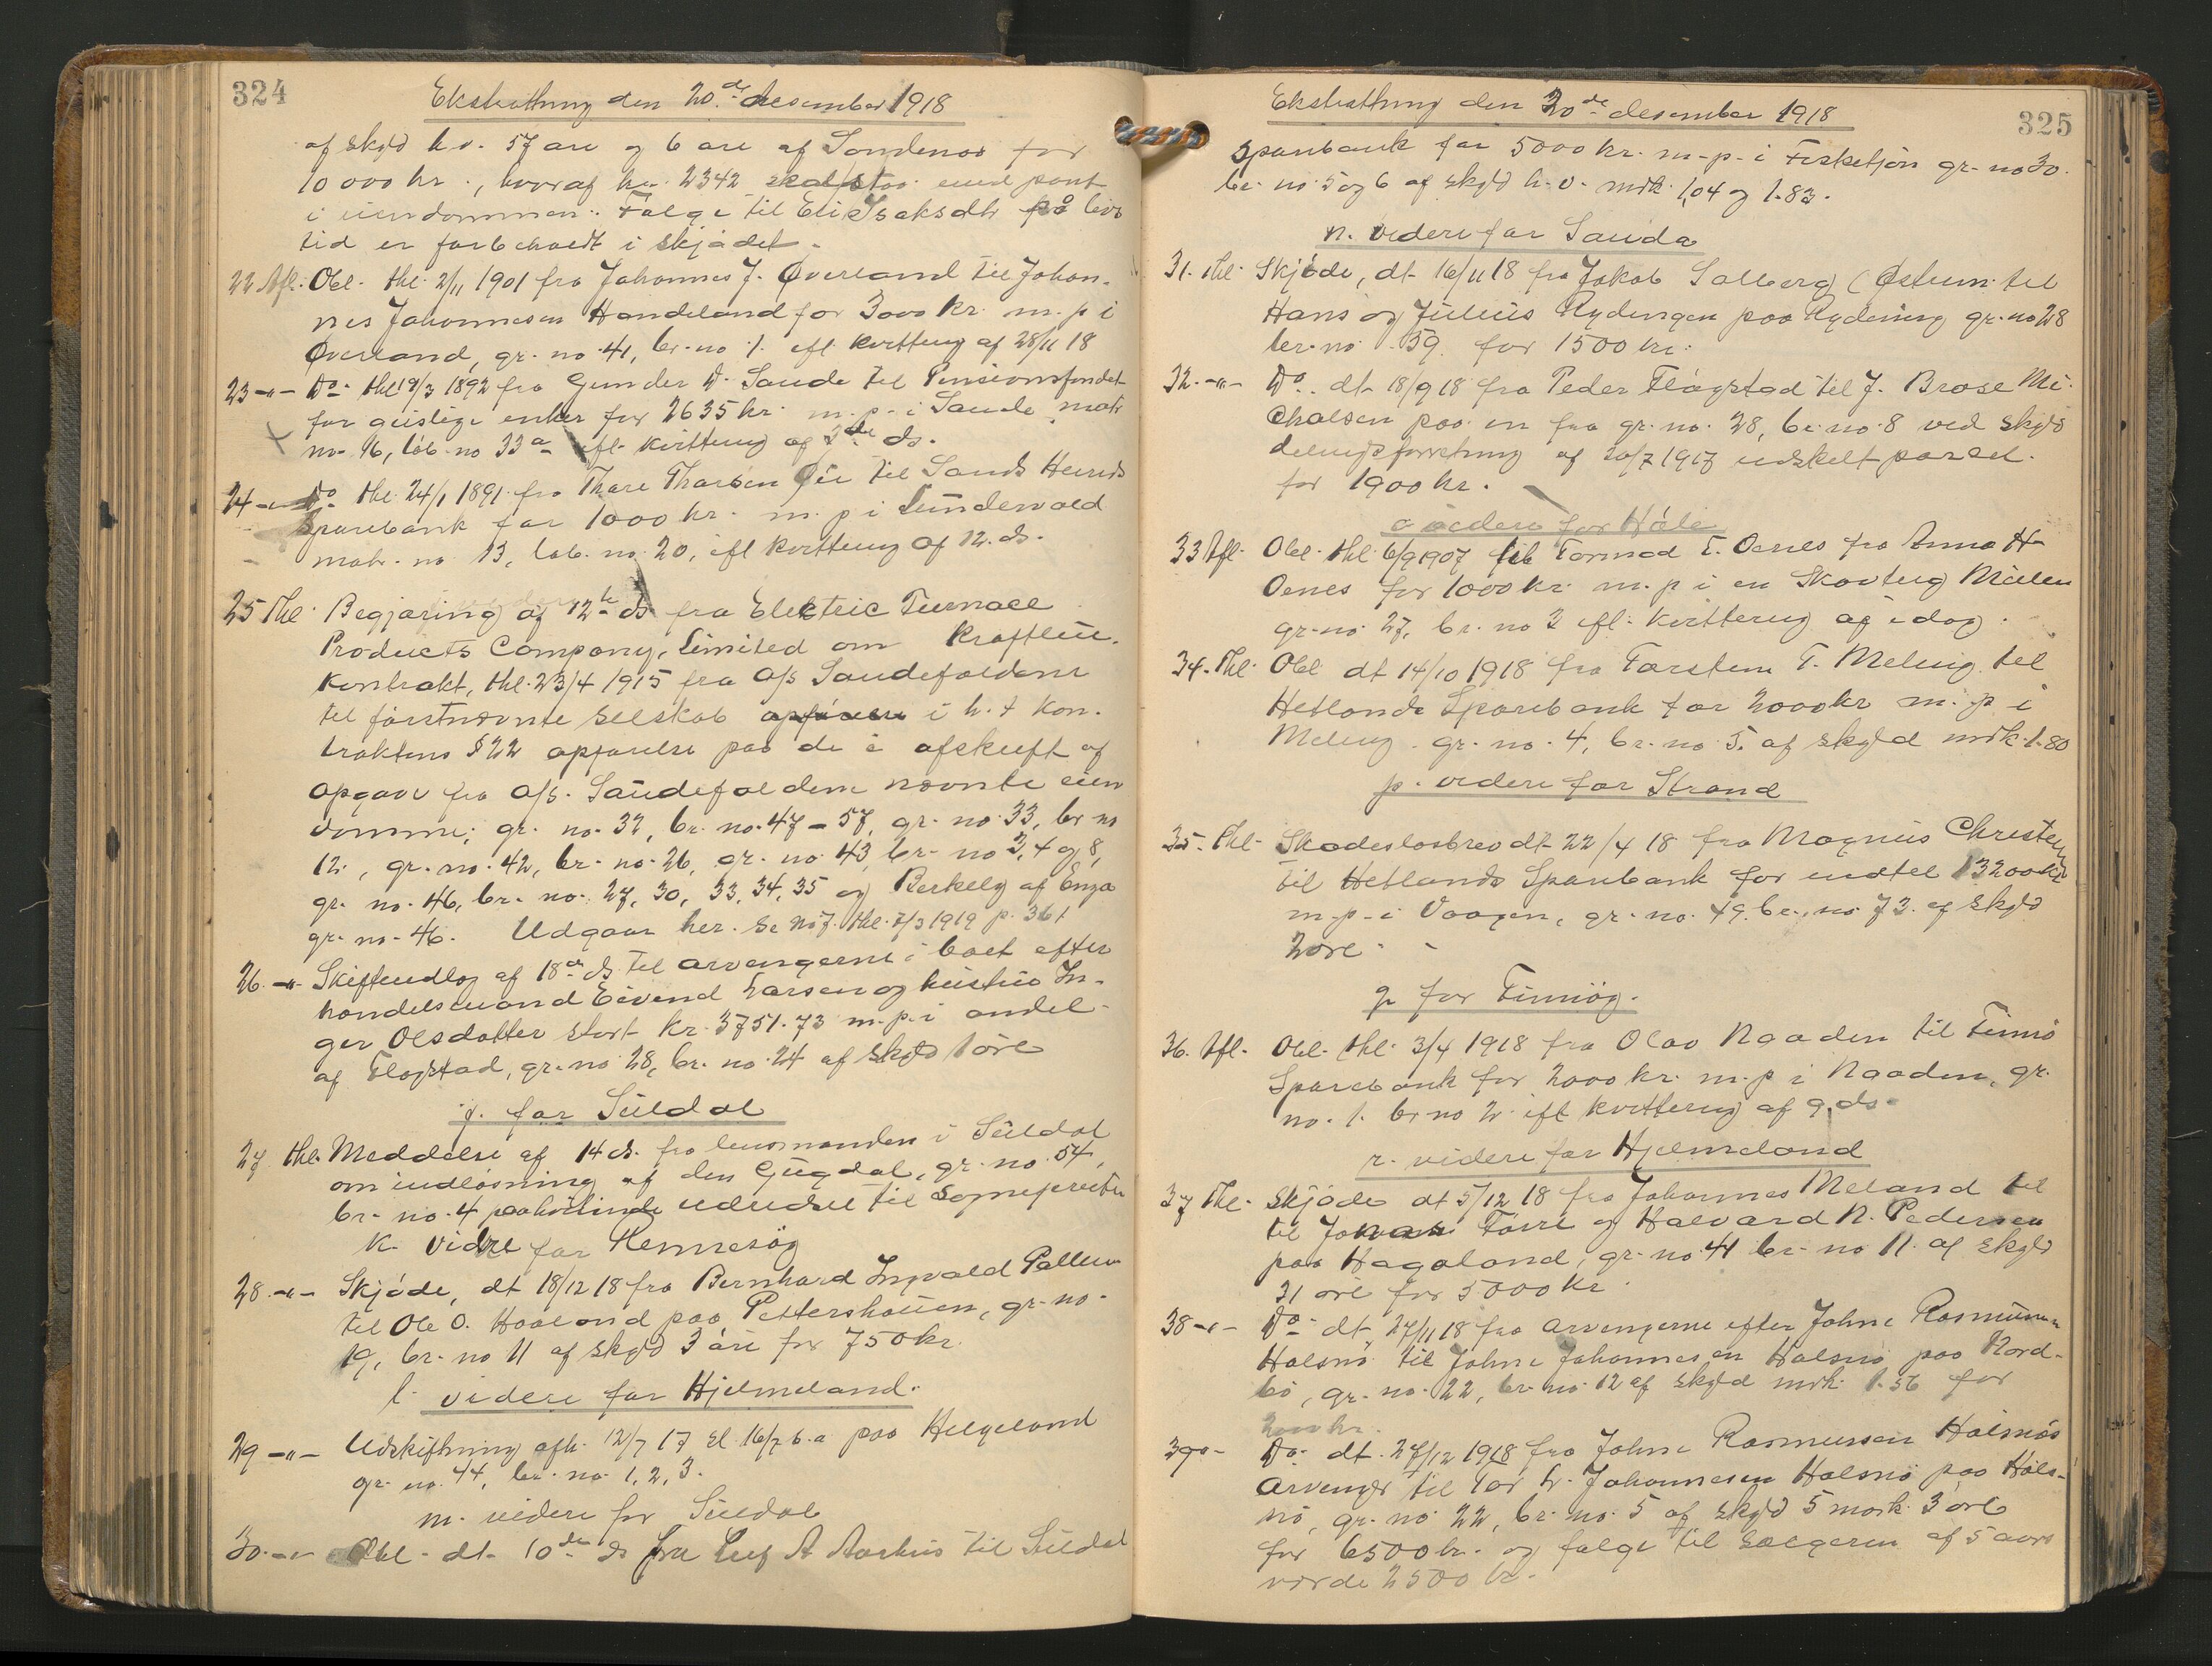 324
Ekstratting den 20de desember 1918
af skyld h.v. 57 øre og 6 øre af Sondenaa for
10 000 kr., hvoraf kr. 2342 skal staa med pant
i eiendommen. Følge til Eli Isaksdtr på livs
tid er forbeholdt i skjødet.
22 Afl. Obl. thl. 2/11 1901 fra Johannes J. Øverland til Johan-
nes Johannesen Handeland for 3000 kr. m. p. i
Øverland, gr. no. 41, br. no 1. ifl. kvittering af 28/11 18
23 -"- Do. thl 19/3 1892 fra Gunder D. Saude til Pensionsfondet
for geistlige enker for 2635 kr. m. p. i Saude matr
no. 16, løb. no 33a ifl. kvittering af 2de ds.
24 -"- Do. thl. 24/1 1891 fra Thore Thorsen Øie til Sands Herreds
Sparebank for 1000 kr. m. p i Lundevold
matr. no 13, løb. no. 20, ifl kvittering af 12. ds.
25 Thl. Begjæring af 12te ds fra Electric Furnace
Products Company, Limited om Kraftleie-
kontrakt, thl. 23/4 1915 fra A/S Saudefaldene
til førstnævnte selskab opføres i h. t Kon-
traktens §22 opførelse paa de i afskrift af
opgave fra A/S. Saudefaldene nævnte eien
domme; gr. no. 32, br. no. 47 - 57, gr. no. 33, br no
12., gr. no. 42, br. no. 26, gr. no 43, br. no 3, 4 og 8,
gr. no. 46, br. no. 27, 30, 33, 34, 35 og Berkely af Enga
gr. no. 46. Udgaar her. Se no 7. thl. 7/3 1919 p. 361
26. -"- Skifteudlæg af 18de ds. til arvingerne i boet efter
handelsmand Eivind Larsen og hustru In-
ger Olsdatter stort kr. 3751.73 m. p. i andel
af Flogstad, gr. no 28, br. no. 24 af skyld 1 øre
j. for Suldal
27 thl. Meddelse af 14 ds. fra lensmanden i Suldal
om indløsning af den Gugdal, gr. no. 54,
br. no. 4 paahvilende udredsel til Sognepresten
k. vidre for Rennesøy
28. -"- Skjøde, dt 18/12 18 fra Bernhard Ingvald Pallesen
til Ole O. Haaland paa Pettershaven, gr. no.
19, br. no 11 af skyld 3 øre for 750 kr.
l. videre for Hjelmeland.
29 -"- Udskiftning afh. 12/7 17 sl. 16/7 b. a paa Helgeland
gr. no. 44, br. no. 1, 2, 3.
m. videre for Suldal
30. -"- Obl. dt. 10de ds fra Leif A Aarhus til Suldal
325
Ekstratting den 20de desember 1918
Sparebank for 5000 kr. m. p. i Fisketjøn gr. no 30.
br. no 5 og 6 af skyld h. v. mrk. 1,04 og 1.83.
n. videre for Sauda
31. thl. Skjøde, dt 16/11 18 fra Jakob Solberg (Østrem til
Hans og Julius Rydningen paa Rydning gr. no 28
br. no. 59. for 1500 kr.
32. -"- Do. dt 18/9 18 fra Peder Flogstad til J. Brose Mi-
chalsen paa en fra gr. no. 28, br. no. 8 ved skyld
delingsforretning af 20/7 1917 udskilt parsel.
for 1900 kr.
o videre for Høle
33 Afl. Obl. thl. 6/9 1907 fra Tormod T. Oenes fra Anna H
Oenes for 1000 kr. m. p i en Skovteig Mielen
gr. no 27, br. no 2 ifl. kvittering af idag.
34. Thl. Obl. dt 14/10 1918 fra Torstein T. Meling til
Hetlands Sparebank for 2000 kr m. p i
Meling. gr. no. 4, br. no 5. af skyld mrk. 1.80
p. videre for Strand
35. Thl. Skadesløsbrev dt 22/4 18 fra Magnus Christensen
til Hetlands Sparebank for indtil 13200 kr
m. p. i Vaagen, gr. no. 49. br. no 73. af skyld
2 øre.
q for Finnøy.
36. Afl. Obl. thl. 3/4 1918 fra Olav Naaden til Finnø
Sparebank for 2000 kr. m. p i Naaden, gr.
no. 1. br no 2. ifl kvittering af 9. ds.
r. videre for Hjelmeland
37 Thl. Skjøde dt 5/12 18 fra Johannes Meland til
til Jonas Førre og Halvard N. Pedersen
paa Hagaland, gr. no 41 br. no 11. af skyld
31 øre for 5000 kr.
38 -"- Do. dt. 27/11 18 fra arvingerne efter Johne Rasmussen
Halsnø til Johne Johannesen Halsnø paa Nord-
bø, gr. no. 22, br. no. 12 af skyld mrk. 1.56 for
2000 kr.
39 -"- Do. dt. 27/12 1918 fra Johne Rasmussen Halsnøs
arvinger til Tor L. Johannesen Halsnø paa Hals-
nø, gr. no 22, br. no. 5 af skyld 5 mark 3 øre
for 6500 kr. og følge til sælgeren af 5 aars
værde 2500 kr.